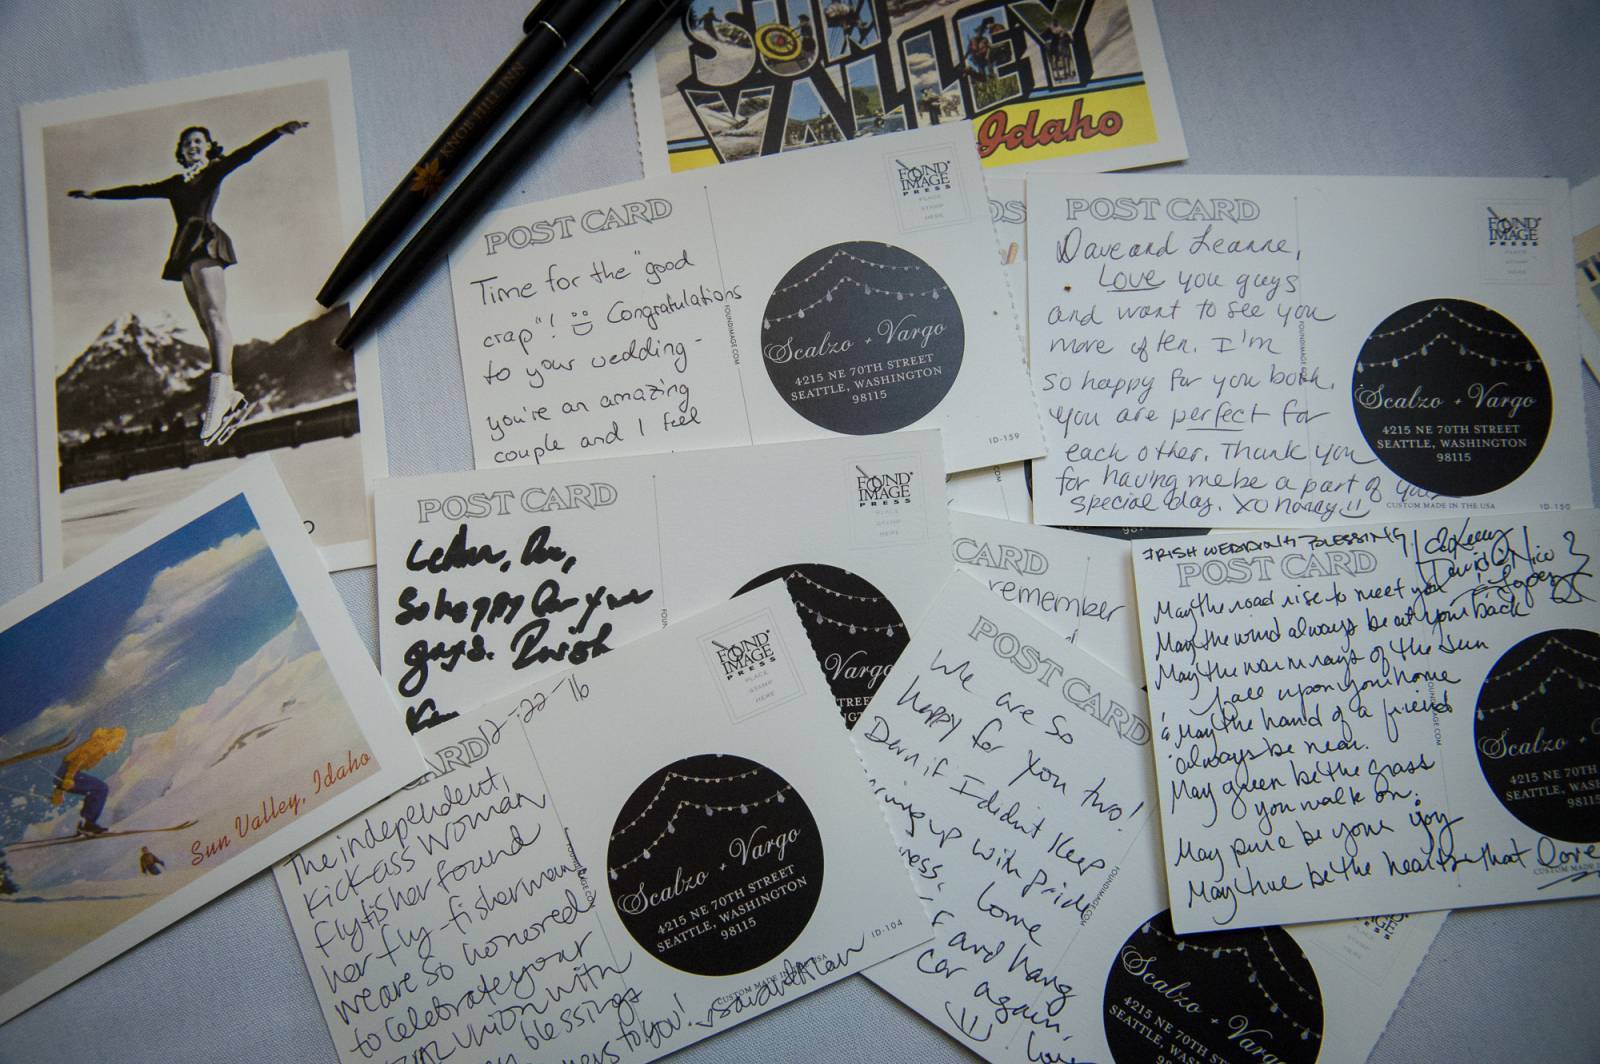 SUN
VALLEY
Idaho
KNOB HILL INN
POST CARD
FOUND
IMAGE
PRESS
PLACE
STAMP
HERE
Time for the "good
crap"! Congratulations
to your wedding -
you're an amazing
couple and I feel
FOUNDIMAGE.COM
Scalzo + Vargo
4215 NE 70TH STREET
SEATTLE, WASHINGTON
98115
ID-159
POST CARD
FOUND
IMAGE
PRESS
Dave and Leanne,
Love you guys
and want to see you
more often. I'm
so happy for you both.
You are perfect for
each other. Thank you
for having me be a part of
special day. XO
Scalzo + Vargo
4215 NE 70TH STREET
SEATTLE, WASHINGTON
98115
CUSTOM MADE IN THE USA
ID-150
POST CARD
FOUND
IMAGE
PRESS
PLACE
STAMP
HERE
So happy for you
guys.
Vargo
CARD
remember
IRISH WEDDING BLESSING
POST CARD
May the road rise to meet you
May the wind always be at your back
May the warm rays of the sun
fall upon your home
& May the hand of a friend
always be near.
May green be the grass
you walk on.
May pure be your joy
May true be the hearts that love
Scalzo
4215 NE 70TH
Sun Valley, Idaho
CARD
12-22-16
FOUND
IMAGE
PRESS
PLACE
STAMP
HERE
The independent,
kickass woman
flyfisher found
her fly-fisherman
we are so honored
to celebrate your
union with
blessings
to you!
Scalzo + Vargo
4215 NE 70TH STREET
SEATTLE, WASHINGTON
98115
ID-104
CUSTOM MADE IN THE USA
POST CARD
We are so
happy for you two!
Darn if I didn't keep
up with pride
Come
and hang
again.
FOUNDIMAGE.COM
Scalzo + Vargo
4215 NE 70TH STREET
SEATTLE, WASHINGTON